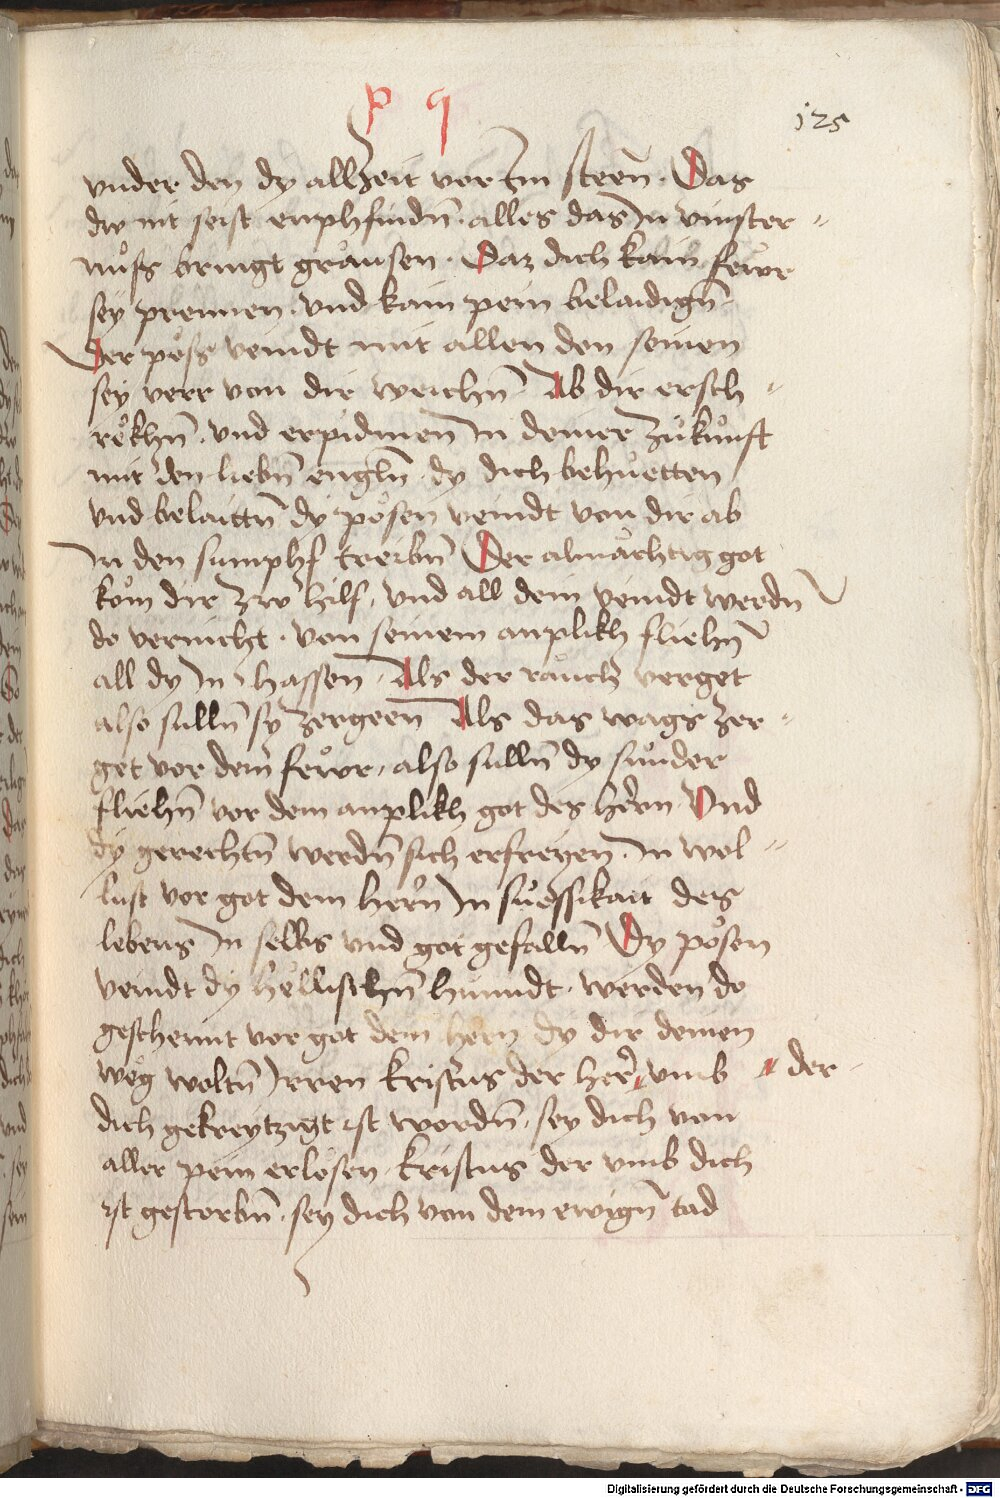 p q
125
vnder den dy allzeit vor Im steen̄. Das
dw nit seist enphfindn̄. alles das In vinster⸗
nuͦss bringt graͤusen. Daz dich kain fewr
sey prennen. vnd kain pein belaidign̄.
Der poͤss veindt mit allen den seinen
sey verr von dir weichn̄. Ab dir ersch⸗
reͤkhn̄. vnd erpidmen In deiner zuͦkunft
mit den liebn̄ engln̄. dy dich behuͤetten
vnd belaittn̄ dy poͤsen veindt von dir ab
In den sumphf treibn̄ Der almaͤchtig got
koͤm dir zw hilf, vnd all dein veindt werdn̄
do vernicht. von seinem anplikh fliehn̄
all dy In hassen. Als der rauch verget
also sulln̄ sy zergeen̄ Als das wags zer⸗
get vor dem fewr, also sulln̄ dy sunder
fliehn̄ vor dem anplikh got des hern Vnd
dy gerechtn̄ werdn̄ sich erfreyen. In wol⸗
lust vor got dem hern̄ In suͤessikait des
lebens In selbs vnd got gefalln̄ Dy poͤsen
veindt dy hellischn̄ hunndt. werden do
geschennt vor got dem hern dy dir deinen
weg woltn̄ Irren kristus der her vmb der
dich gekreytzigt ist wordn̄. sey dich von
aller pein erloͤsen. kristus der vmb dich
ist gestorbn̄. sey dich von dem ewign̄ tad
Digitalisierung gefördert durch die Deutsche Forschungsgemeinschaft - DFG